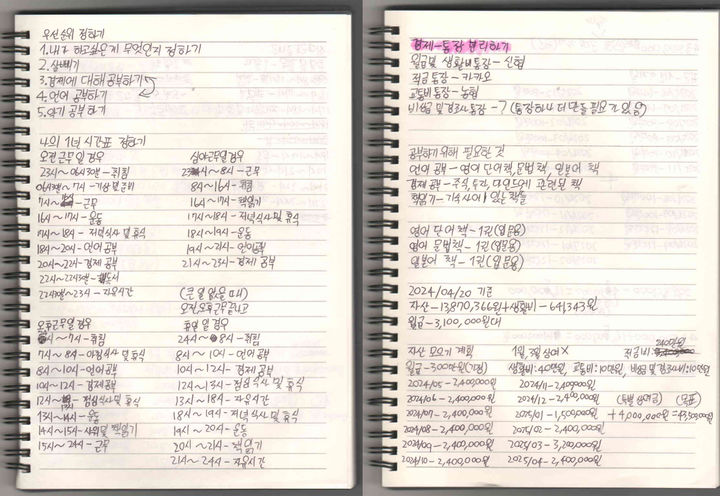 우선순위 정하기
1. 내가 하고싶은게 무엇인지 정하기
2. 살빼기
3. 경제에 대해 공부하기
4. 언어 공부하기
5. 악기 공부하기
나의 1년 시간표 정하기
오전근무일 경우
23시~06시30분 - 취침
06시30분~7시 - 기상 및 준비
7시~ - 근무
16시~17시 - 운동
17시~18시 - 저녁식사 및 휴식
18시~20시 - 언어공부
20시~22시 - 경제 공부
22시~22시30분 - 독서
22시30분~23시 - 자유시간
오후근무일 경우
~7시 - 취침
7시~8시 - 아침식사 및 휴식
8시~10시 - 언어공부
10시~12시 - 경제공부
12시~ - 점심식사 및 휴식
13시~14시 - 운동
14시~15시 - 샤워 및 책읽기
15시~24시 - 근무
심야근무일 경우
~8시 - 근무
8시~16시 - 취침
16시~17시 - 책읽기
17시~18시 - 저녁식사 및 휴식
18시~19시 - 운동
19시~21시 - 언어공부
21시~23시 - 경제 공부
(큰 일 없을 때)
오전,오후근무 끝나고
휴일일 경우
24시~8시 - 취침
8시~10시 - 언어 공부
10시~12시 - 경제 공부
12시~13시 - 점심식사 및 휴식
13시~18시 - 자유시간
18시~19시 - 저녁식사 및 휴식
19시~20시 - 운동
20시~21시 - 책읽기
21시~24시 - 자유시간
경제 - 통장 분리하기
월급 및 생활비통장 - 신협
적금통장 - 카카오
교통비통장 - 농협
비상금 및 경조사통장 - ? (통장하나 더 만들 필요가 있음)
공부하기 위해 필요한 것
언어 공부 - 영어 단어책, 문법책, 일본어 책
경제 공부 - 주식, 투자, 마인드에 관련된 책
책읽기 - 기숙사에 있는 책들
영어 단어 책 - 1권(입문용)
영어 문법책 - 1권(입문용)
일본어 책 - 1권(입문용)
2024/04/20 기준
자산 - 13,870,366원 + 생활비 - 641,343원
월급 - 3,100,000원대
자산 모으기 계획 1월, 3월 상여 X 적금비: 240만원
월급 - 300만원(가정) 생활비:40만원, 교통비:10만원, 비상금 및 경조사비:10만원
2024/05 - 2,400,000원 2024/11 - 2,400,000원
2024/06 - 2,400,000원 2024/12 - 2,400,000원 (특별 상여금) (목표)
2024/07 - 2,400,000원 2025/01 - 1,500,000원 + 4,000,000원 =
2024/08 - 2,400,000원 2025/02 - 2,400,000원
2024/09 - 2,400,000원 2025/03 - 3,200,000원
2024/10 - 2,400,000원 2025/04 - 2,400,000원